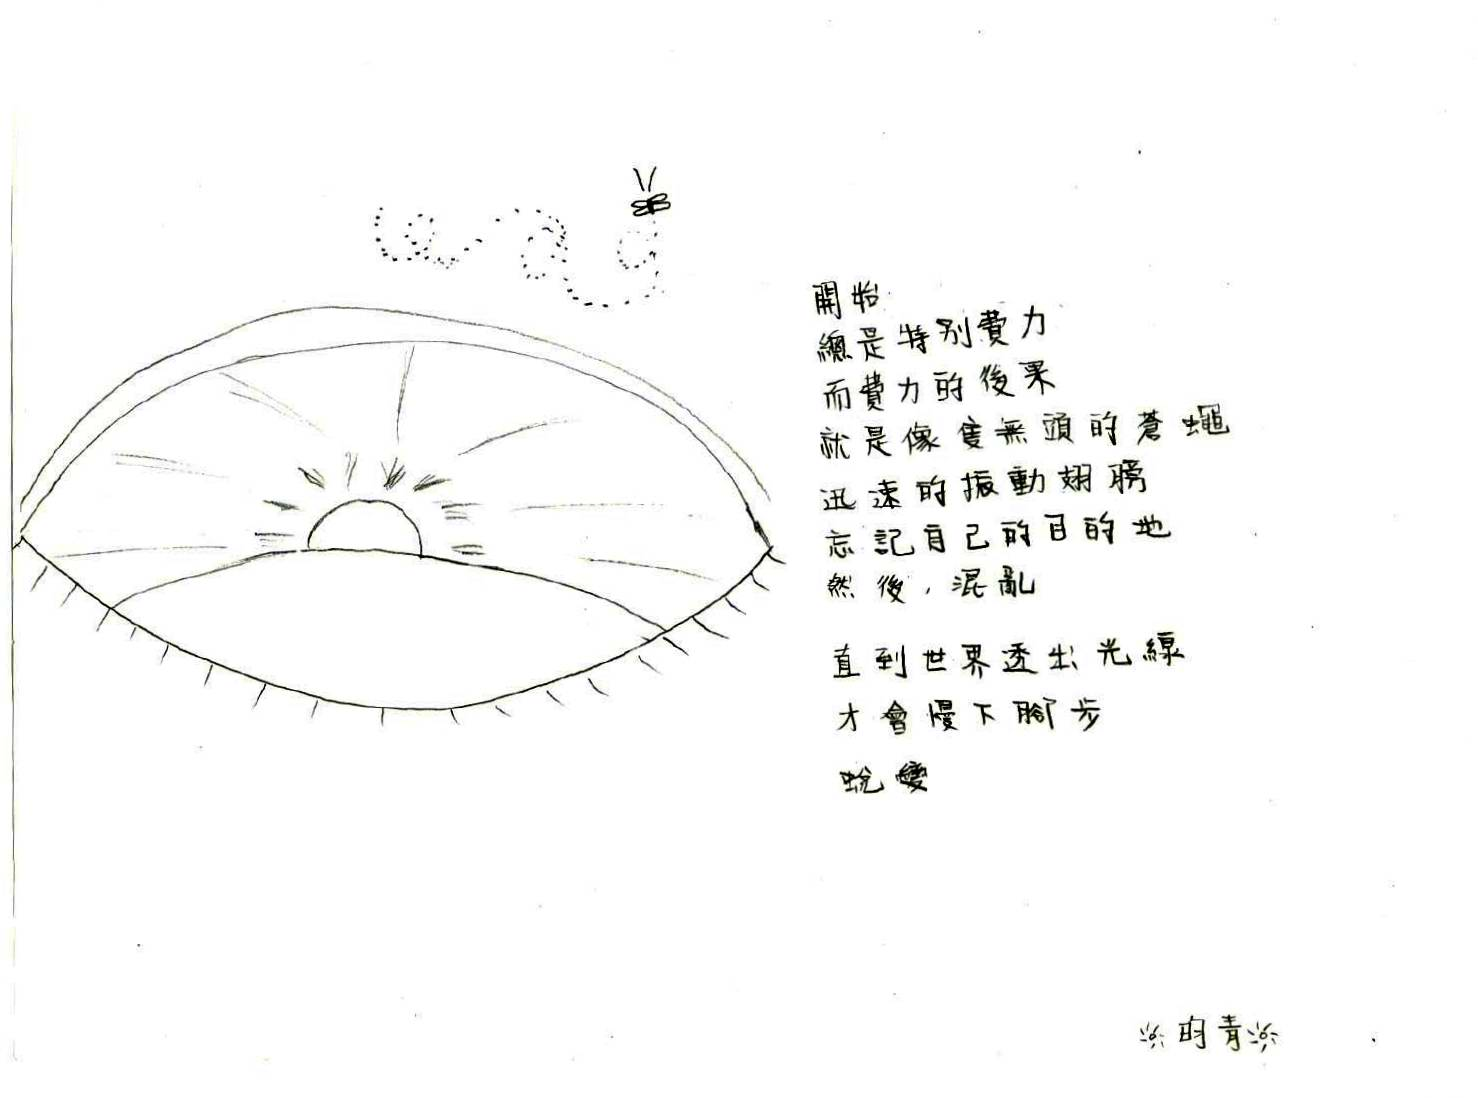 開始
總是特別費力
而費力的後果
就是像隻無頭的蒼蠅
迅速的振動翅膀
忘記自己的目的地
然後，混亂
直到世界透出光線
才會慢下腳步
蛻變
青